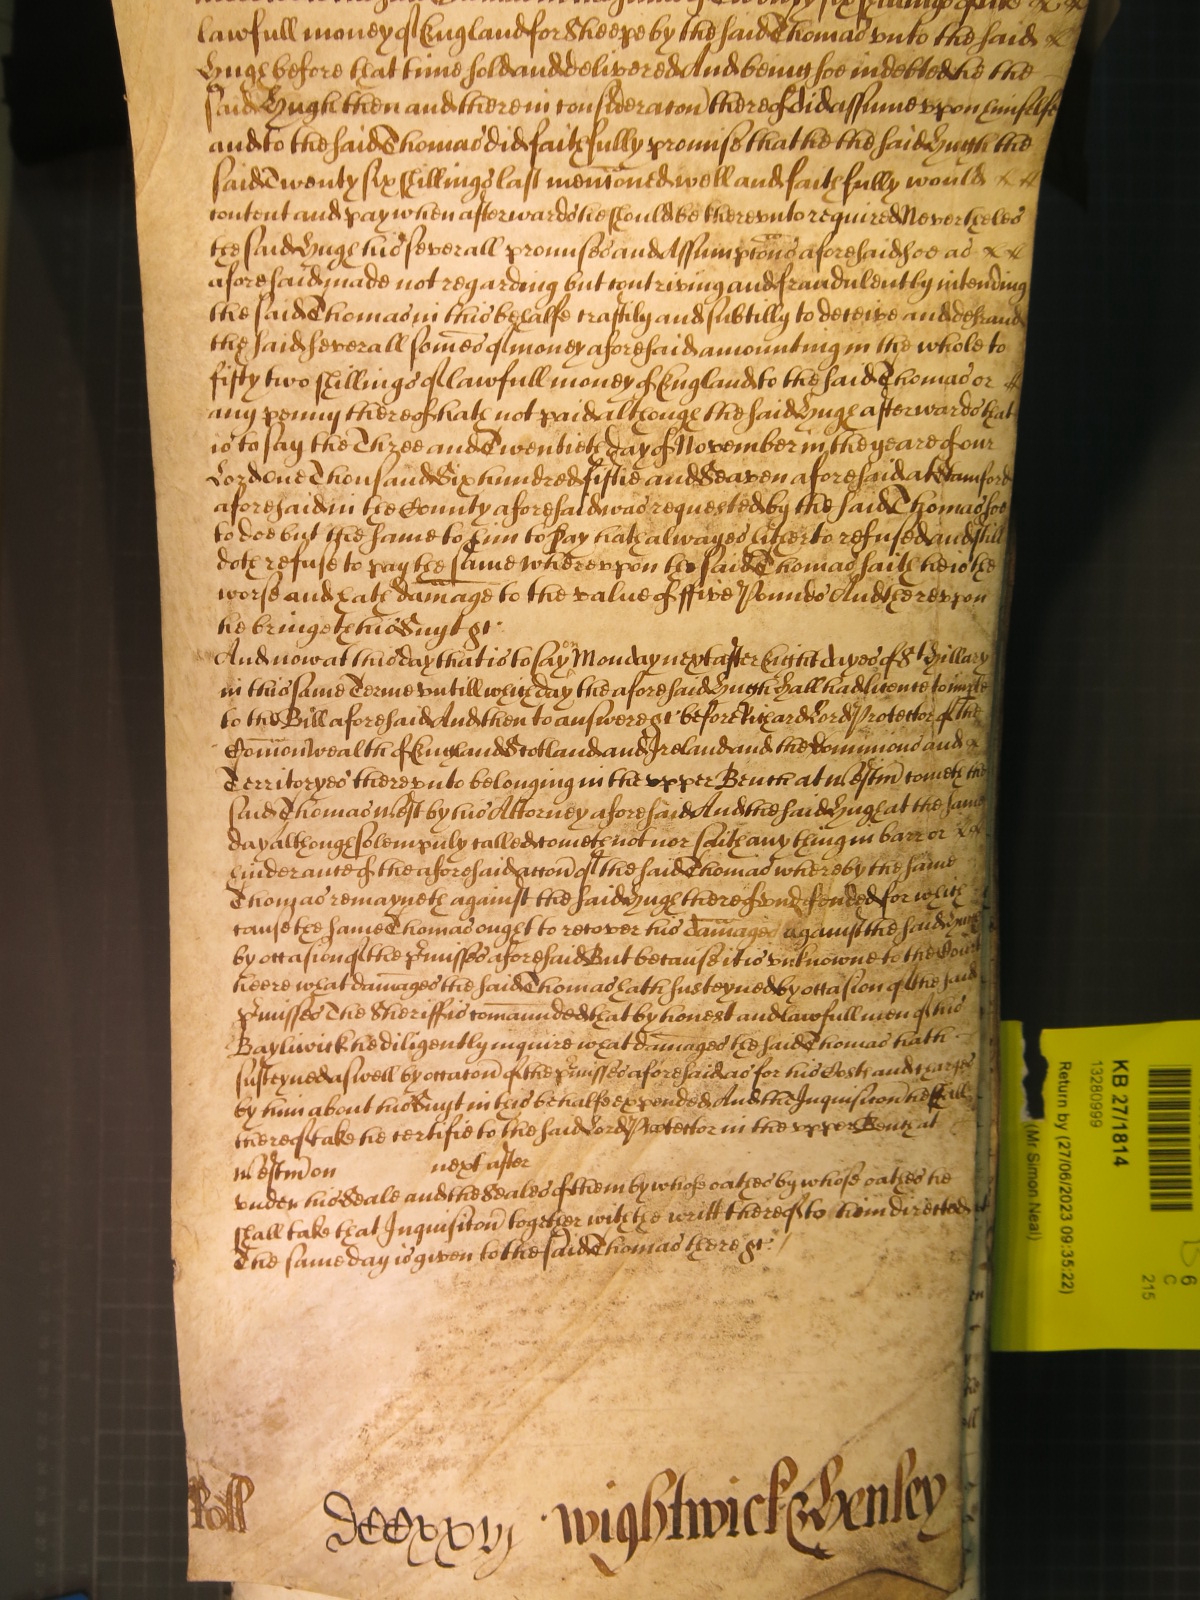 lawfull money of England for Sheepe by the said Thomas vnto the said
Hugh before that time sold and delivered And being soe indebted he the
said Hugh then and there in consideracon thereof did assume vpon himselfe
and to the said Thomas did faithfully promise that he the said Hugh the
said Twenty six shillings last menconed well and faithfully would
content and pay when afterwards he should be therevnto required Nevertheles
the said Hugh his severall promises and Assumpcons aforesaid soe as
aforesaid made not regarding but contriving and fraudulently intending
the said Thomas in this behalfe craftily and subtilly to deceive and defraud
the said severall somes of money aforesaid amounting in the whole to
fifty two shillings of lawfull money of England to the said Thomas or
any penny thereof hath not paid although the said Hugh afterwards that
is to say the Three and Twentieth day of November in the yeare of our
Lord one Thousand Six hundred fiftie and Seaven aforesaid at Stamford
aforesaid in the County aforesaid was requested by the said Thomas soe
to doe but the same to him to Pay hath alwayes hitherto refused and still
doth refuse to pay the same wherevpon the said Thomas saith he is the
worse and hath damage to the value of ffive Pounds And therevpon
he bringeth his Suyt &c
And now at this day that is to say on Monday next after Eight dayes of St Hillary
in this same Terme vntill which day the aforesaid Hugh Hall had licence to imparle
to the Bill aforesaid And then to answere &c before Richard Lord Protector of the
Comonwealth of England Scotland and Ireland and the Dominions and
Territoryes therevnto belonging in the vpper Bench at Westm cometh the
said Thomas West by his Attorney aforesaid And the said Hugh at the same
day although solempnly called cometh not nor saith any thing in barr or
hinderance of the aforesaid accon of the said Thomas whereby the same
Thomas remayneth against the said Hugh thereof vndefended for which
cause the same Thomas ought to recover his damages against the said Hugh
by occasion of the pmisses aforesaid But because it is vnknowne to the Court
heere what damages the said Thomas hath susteyned by occasion of the said
pmisses The Sheriff is comaunded that by honest and lawfull men of his
Bayliwick he diligently inquire what damages the said Thomas hath
susteyned aswell by occacon of the pmisses aforesaid as for his Costs and charges
by him about his Suyt in this behalfe expended And the Inquisicon he shall
thereof take he certifie to the said Lord Protector in the vpper Bench at
Westm on next after
vnder his Seale and the Seales of them by whose oathes by whose oathes he
shall take that Inquisicon together with the writt thereof to him directed
The same day is given to the said Thomas there &c
Roll DCCxxvj Wightwick & Henley
KB 27/1814
13280999
Return by (27/06/2023 09:35:22)
(Mr Simon Neal)
6
C
215